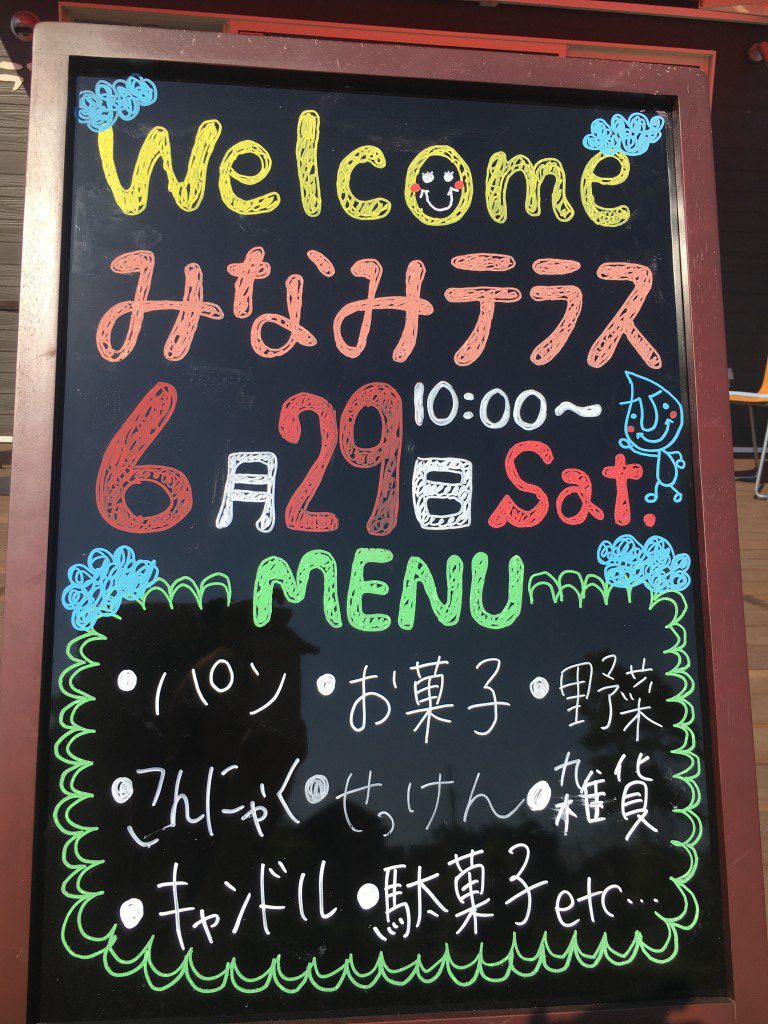 Welcome
みなみテラス
6月29日 10:00～ Sat.
MENU
・パン ・お菓子 ・野菜
・こんにゃく ・せっけん ・雑貨
・キャンドル ・駄菓子 etc…